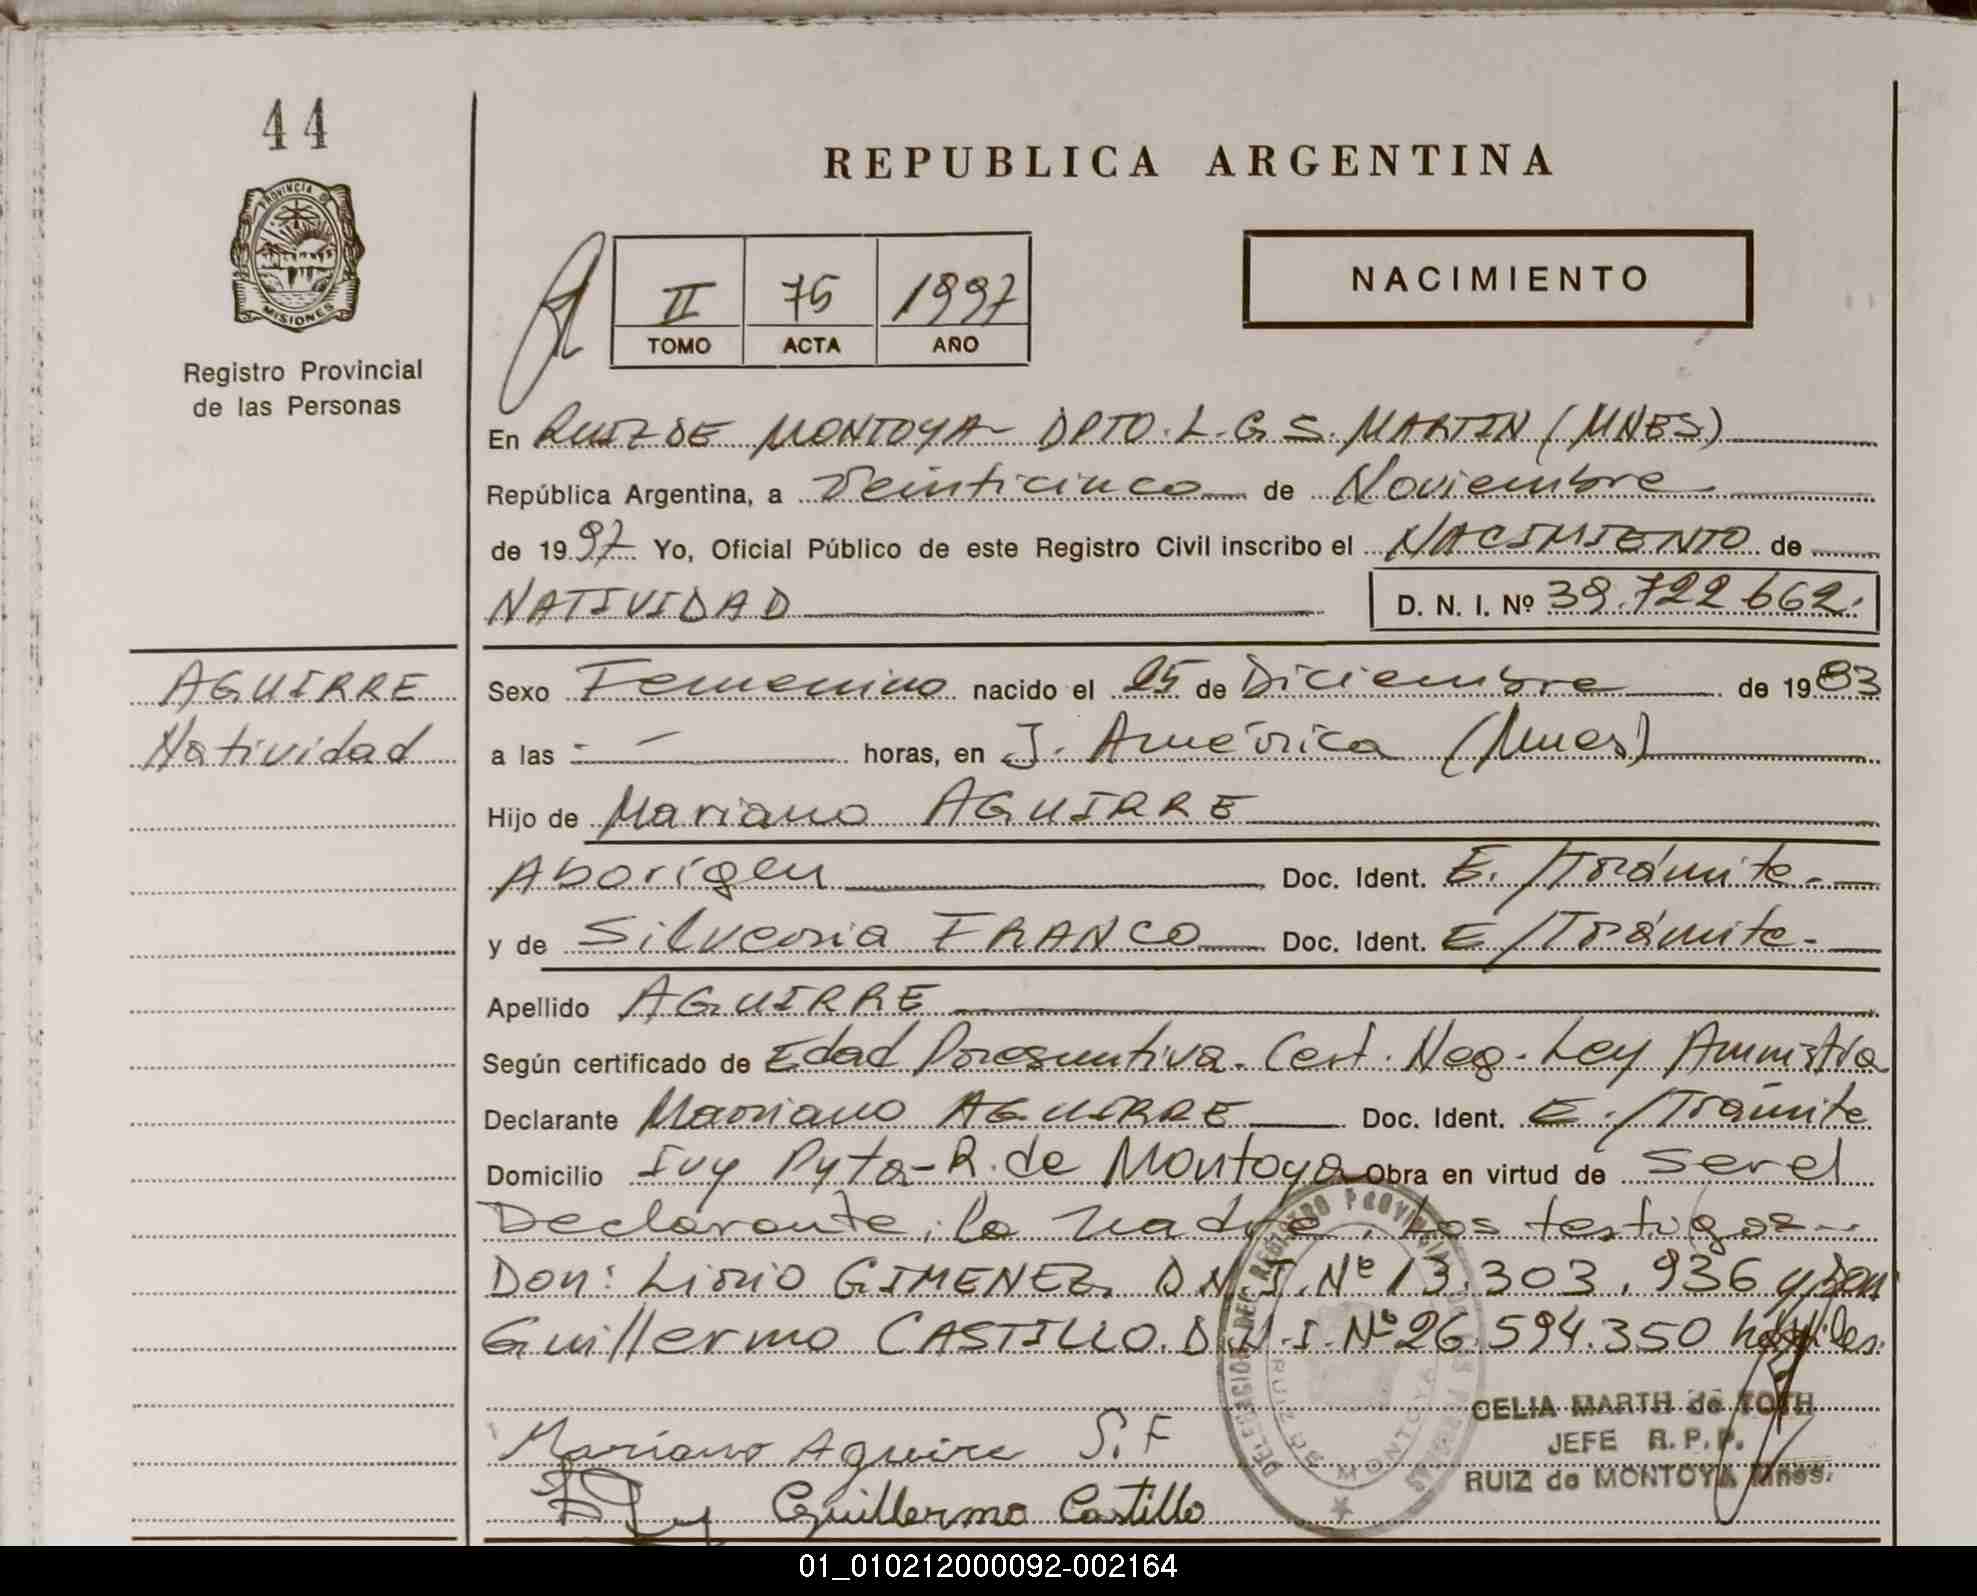 44
PROVINCIA DE
MISIONES
Registro Provincial
de las Personas
REPUBLICA ARGENTINA
II 75 1997
TOMO ACTA AÑO
NACIMIENTO
En RUIZ DE MONTOYA - DPTO. L. G. S. MARTIN (MNES)
República Argentina, a Veinticinco de Noviembre
de 1997 Yo, Oficial Público de este Registro Civil inscribo el NACIMIENTO de
NATIVIDAD D. N. I. Nº 39.722.662.
AGUIRRE
Natividad
Sexo Femenino nacido el 25 de Diciembre de 1983
a las - horas, en J. América (Mnes)
Hijo de Mariano AGUIRRE
Aborígen Doc. Ident. E. /Trámite.
y de Silveria FRANCO Doc. Ident. E /Trámite.
Apellido AGUIRRE
Según certificado de Edad Presuntiva. Cert. Neg. Ley Amnistía
Declarante Mariano AGUIRRE Doc. Ident. E. /Trámite
Domicilio Ivy Pyta - R. de Montoya Obra en virtud de ser el
Declarante; la madre, Los testigos
Don: Lirio GIMENEZ. D.N.I. Nº 13.303.936 y Don
Guillermo CASTILLO. D.N.I. Nº 26.594.350 hábiles.
CELIA MARTH de TOTH
JEFE R. P. P.
RUIZ de MONTOYA Mnes.
DELEGACION DEL REGISTRO PROVINCIAL DE LAS PERSONAS
RUIZ DE MONTOYA
Mariano Aguirre S. F
Guillermo Castillo
01_010212000092-002164